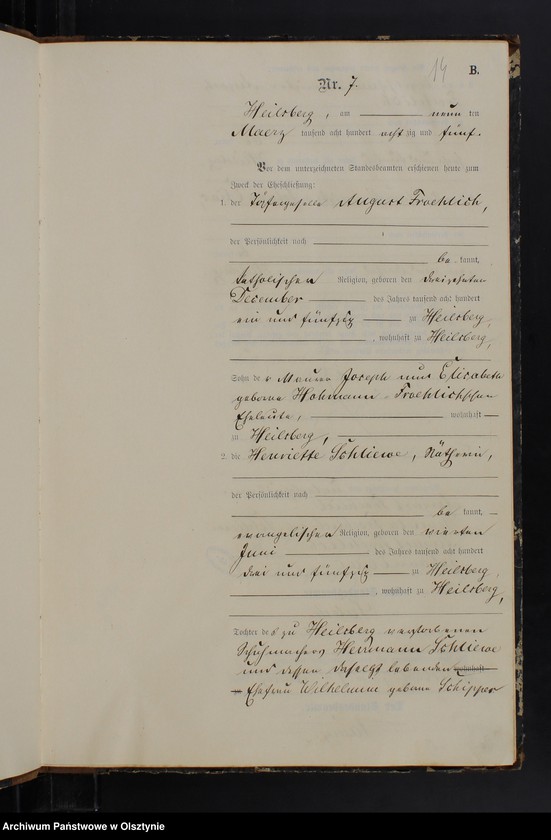 14
B.
Nr. 7.
Heilsberg, am neun ten
Maerz tausend acht hundert acht zig und fünf.
Vor dem unterzeichneten Standesbeamten erschienen heute zum
Zweck der Eheschließung:
1. der Töpfergeselle August Froehlich,
der Persönlichkeit nach
be kannt,
katholischen Religion, geboren den dreizehnten
December des Jahres tausend acht hundert
ein und fünfzig zu Heilsberg,
, wohnhaft zu Heilsberg,
Sohn der Maurer Joseph und Elisabeth
geborne Hohmann - Froehlichschen
Eheleute, wohnhaft
zu Heilsberg,
2. die Henriette Schliewe, Nätherin,
der Persönlichkeit nach
be kannt,
evangelischen Religion, geboren den vierten
Juni des Jahres tausend acht hundert
drei und fünfzig zu Heilsberg,
, wohnhaft zu Heilsberg,
Tochter des zu Heilsberg verstorbenen
Schuhmachers Herrmann Schliewe
und dessen daselbst lebenden wohnhaft
zu Ehefrau Wilhelmine geborne Schipper
Archiwum Państwowe w Olsztynie